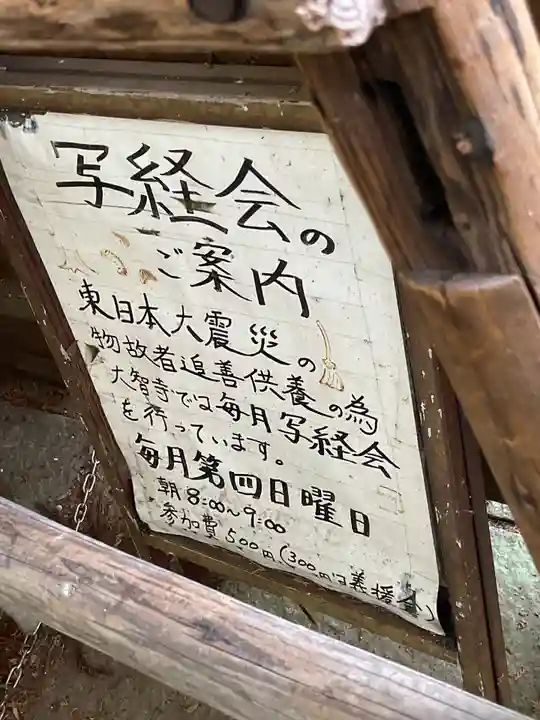 写経会の
ご案内
東日本大震災の
物故者追善供養の為
大智寺では毎月写経会
を行っています。
毎月第四日曜日
朝8:00~9:00
参加費500円(300円は義援金)